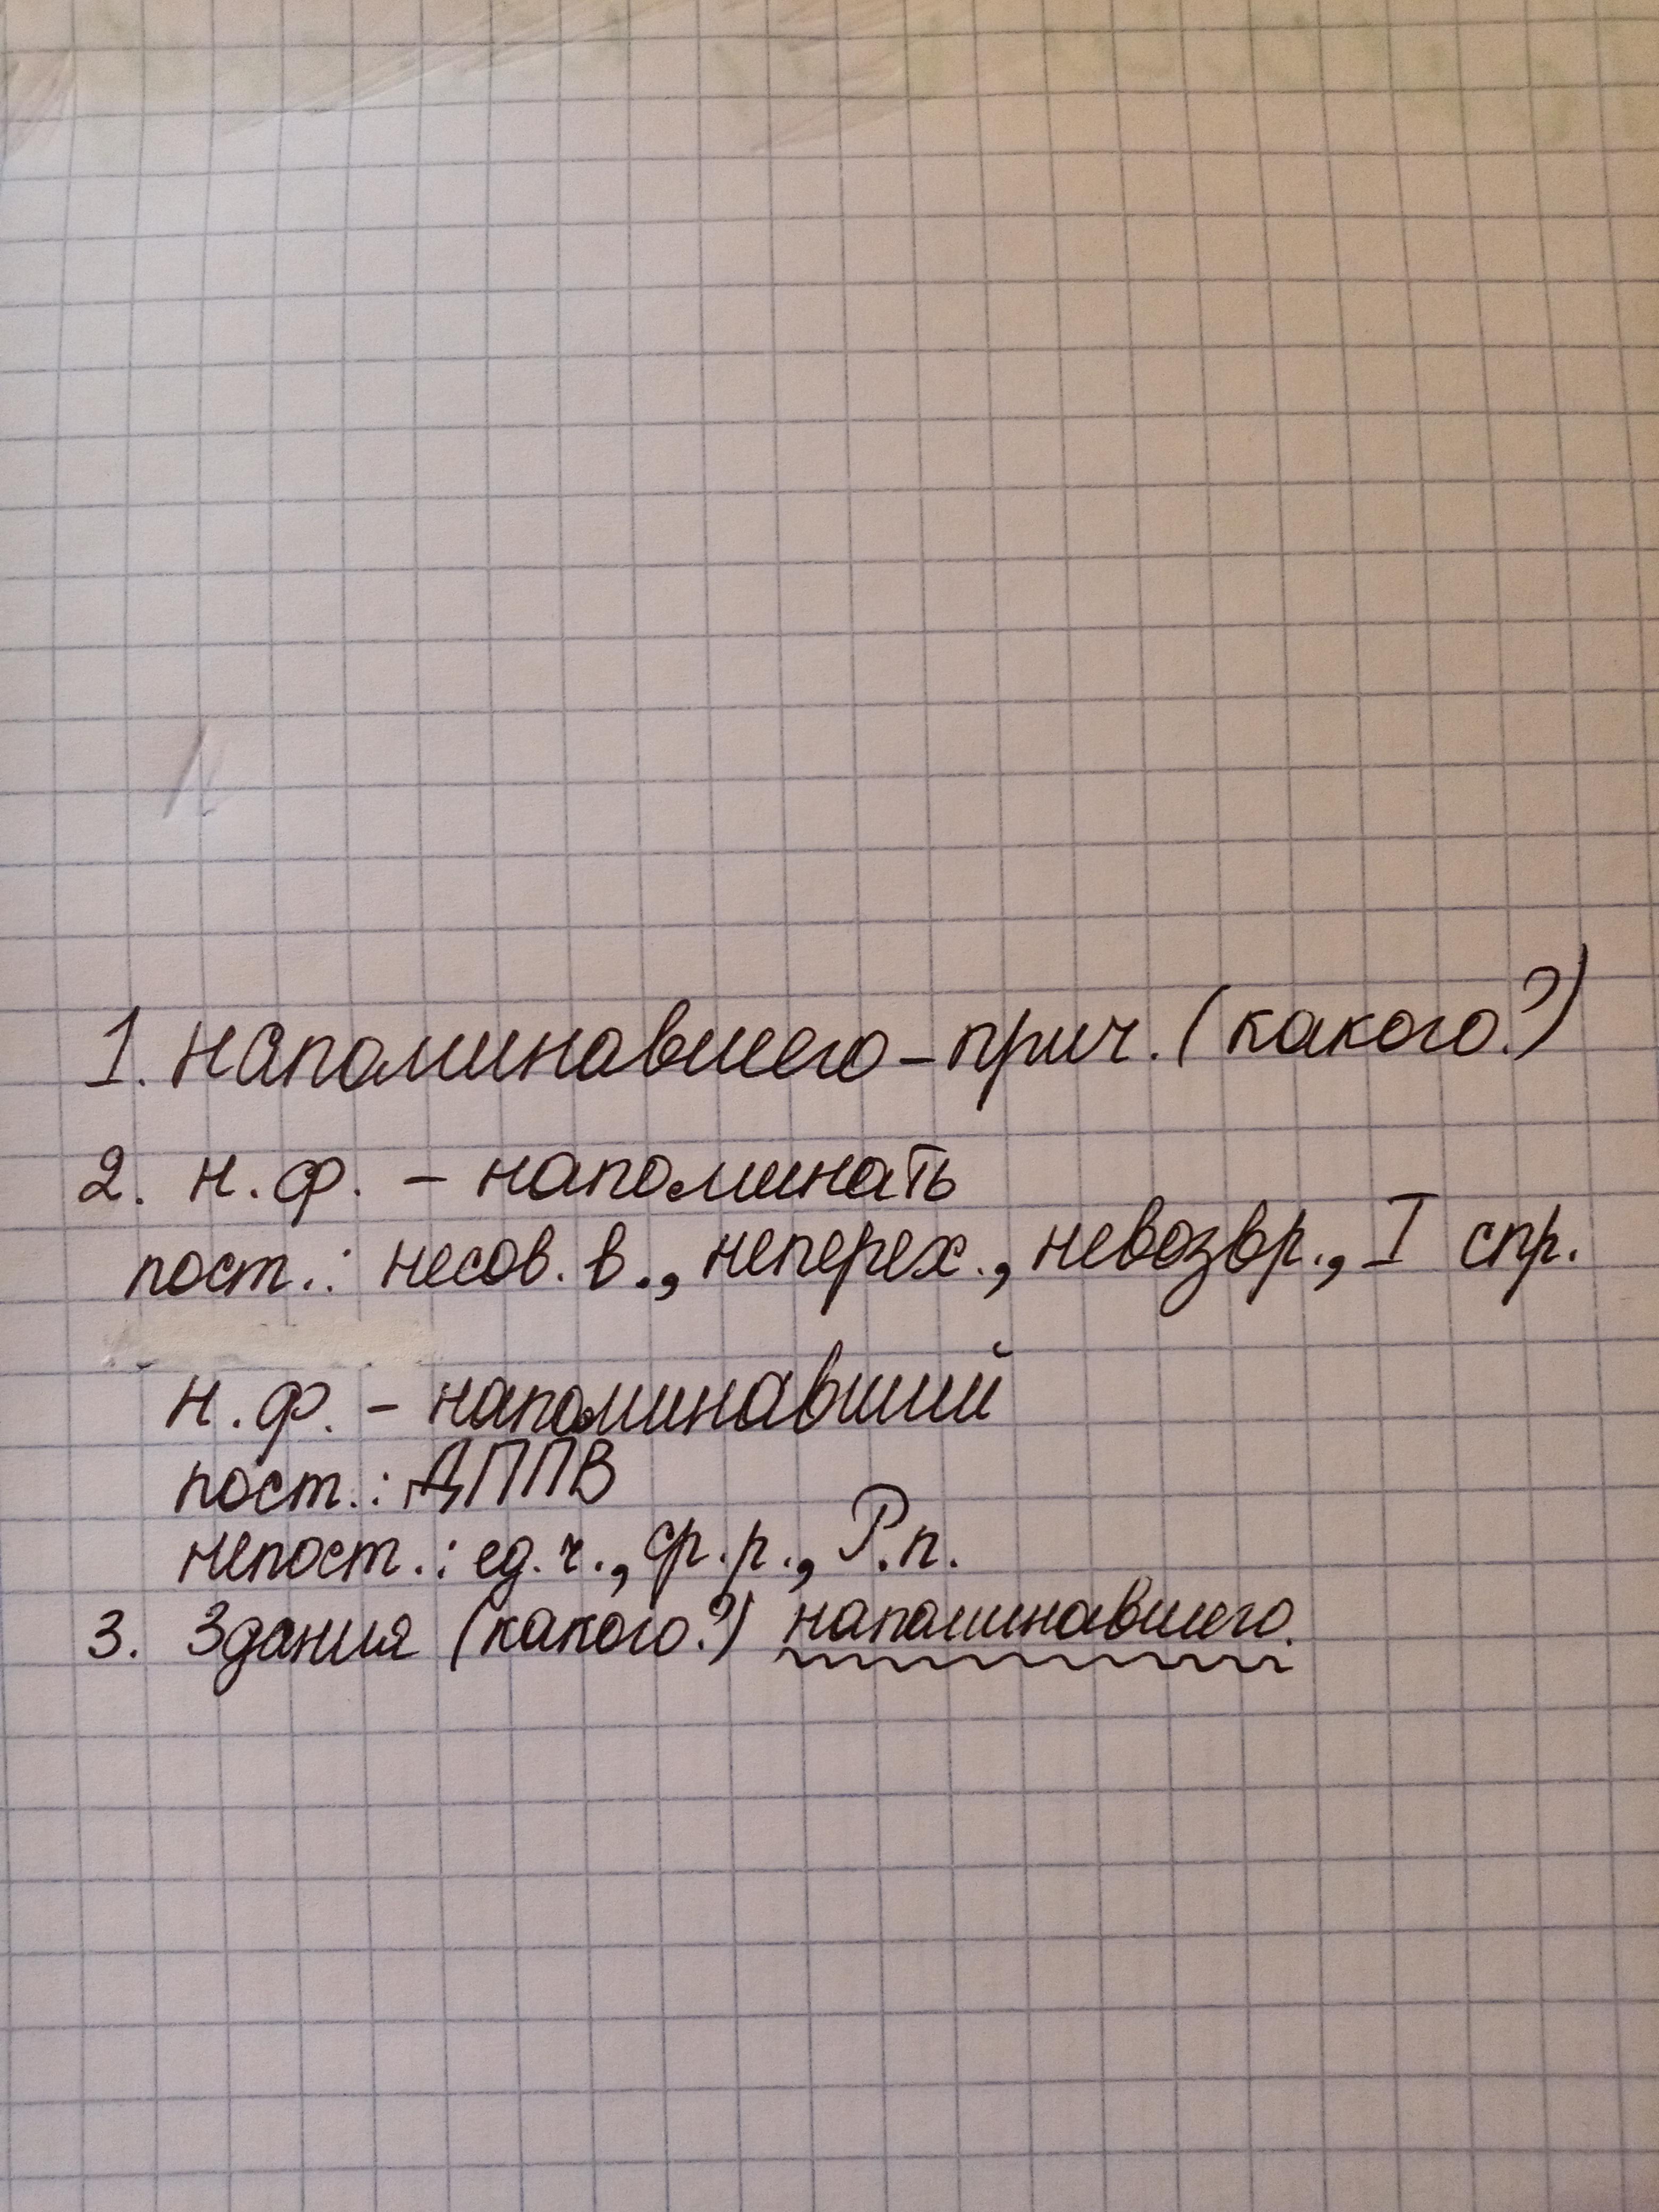 1. напоминавшего – прич. (какого?)
2. н.ф. – напоминать
пост.: несов. в., неперех., невозвр., I спр.
н.ф. – напоминавший
пост.: ДППВ
непост.: ед.ч., ср.р., Р.п.
3. Здания (какого?) напоминавшего.